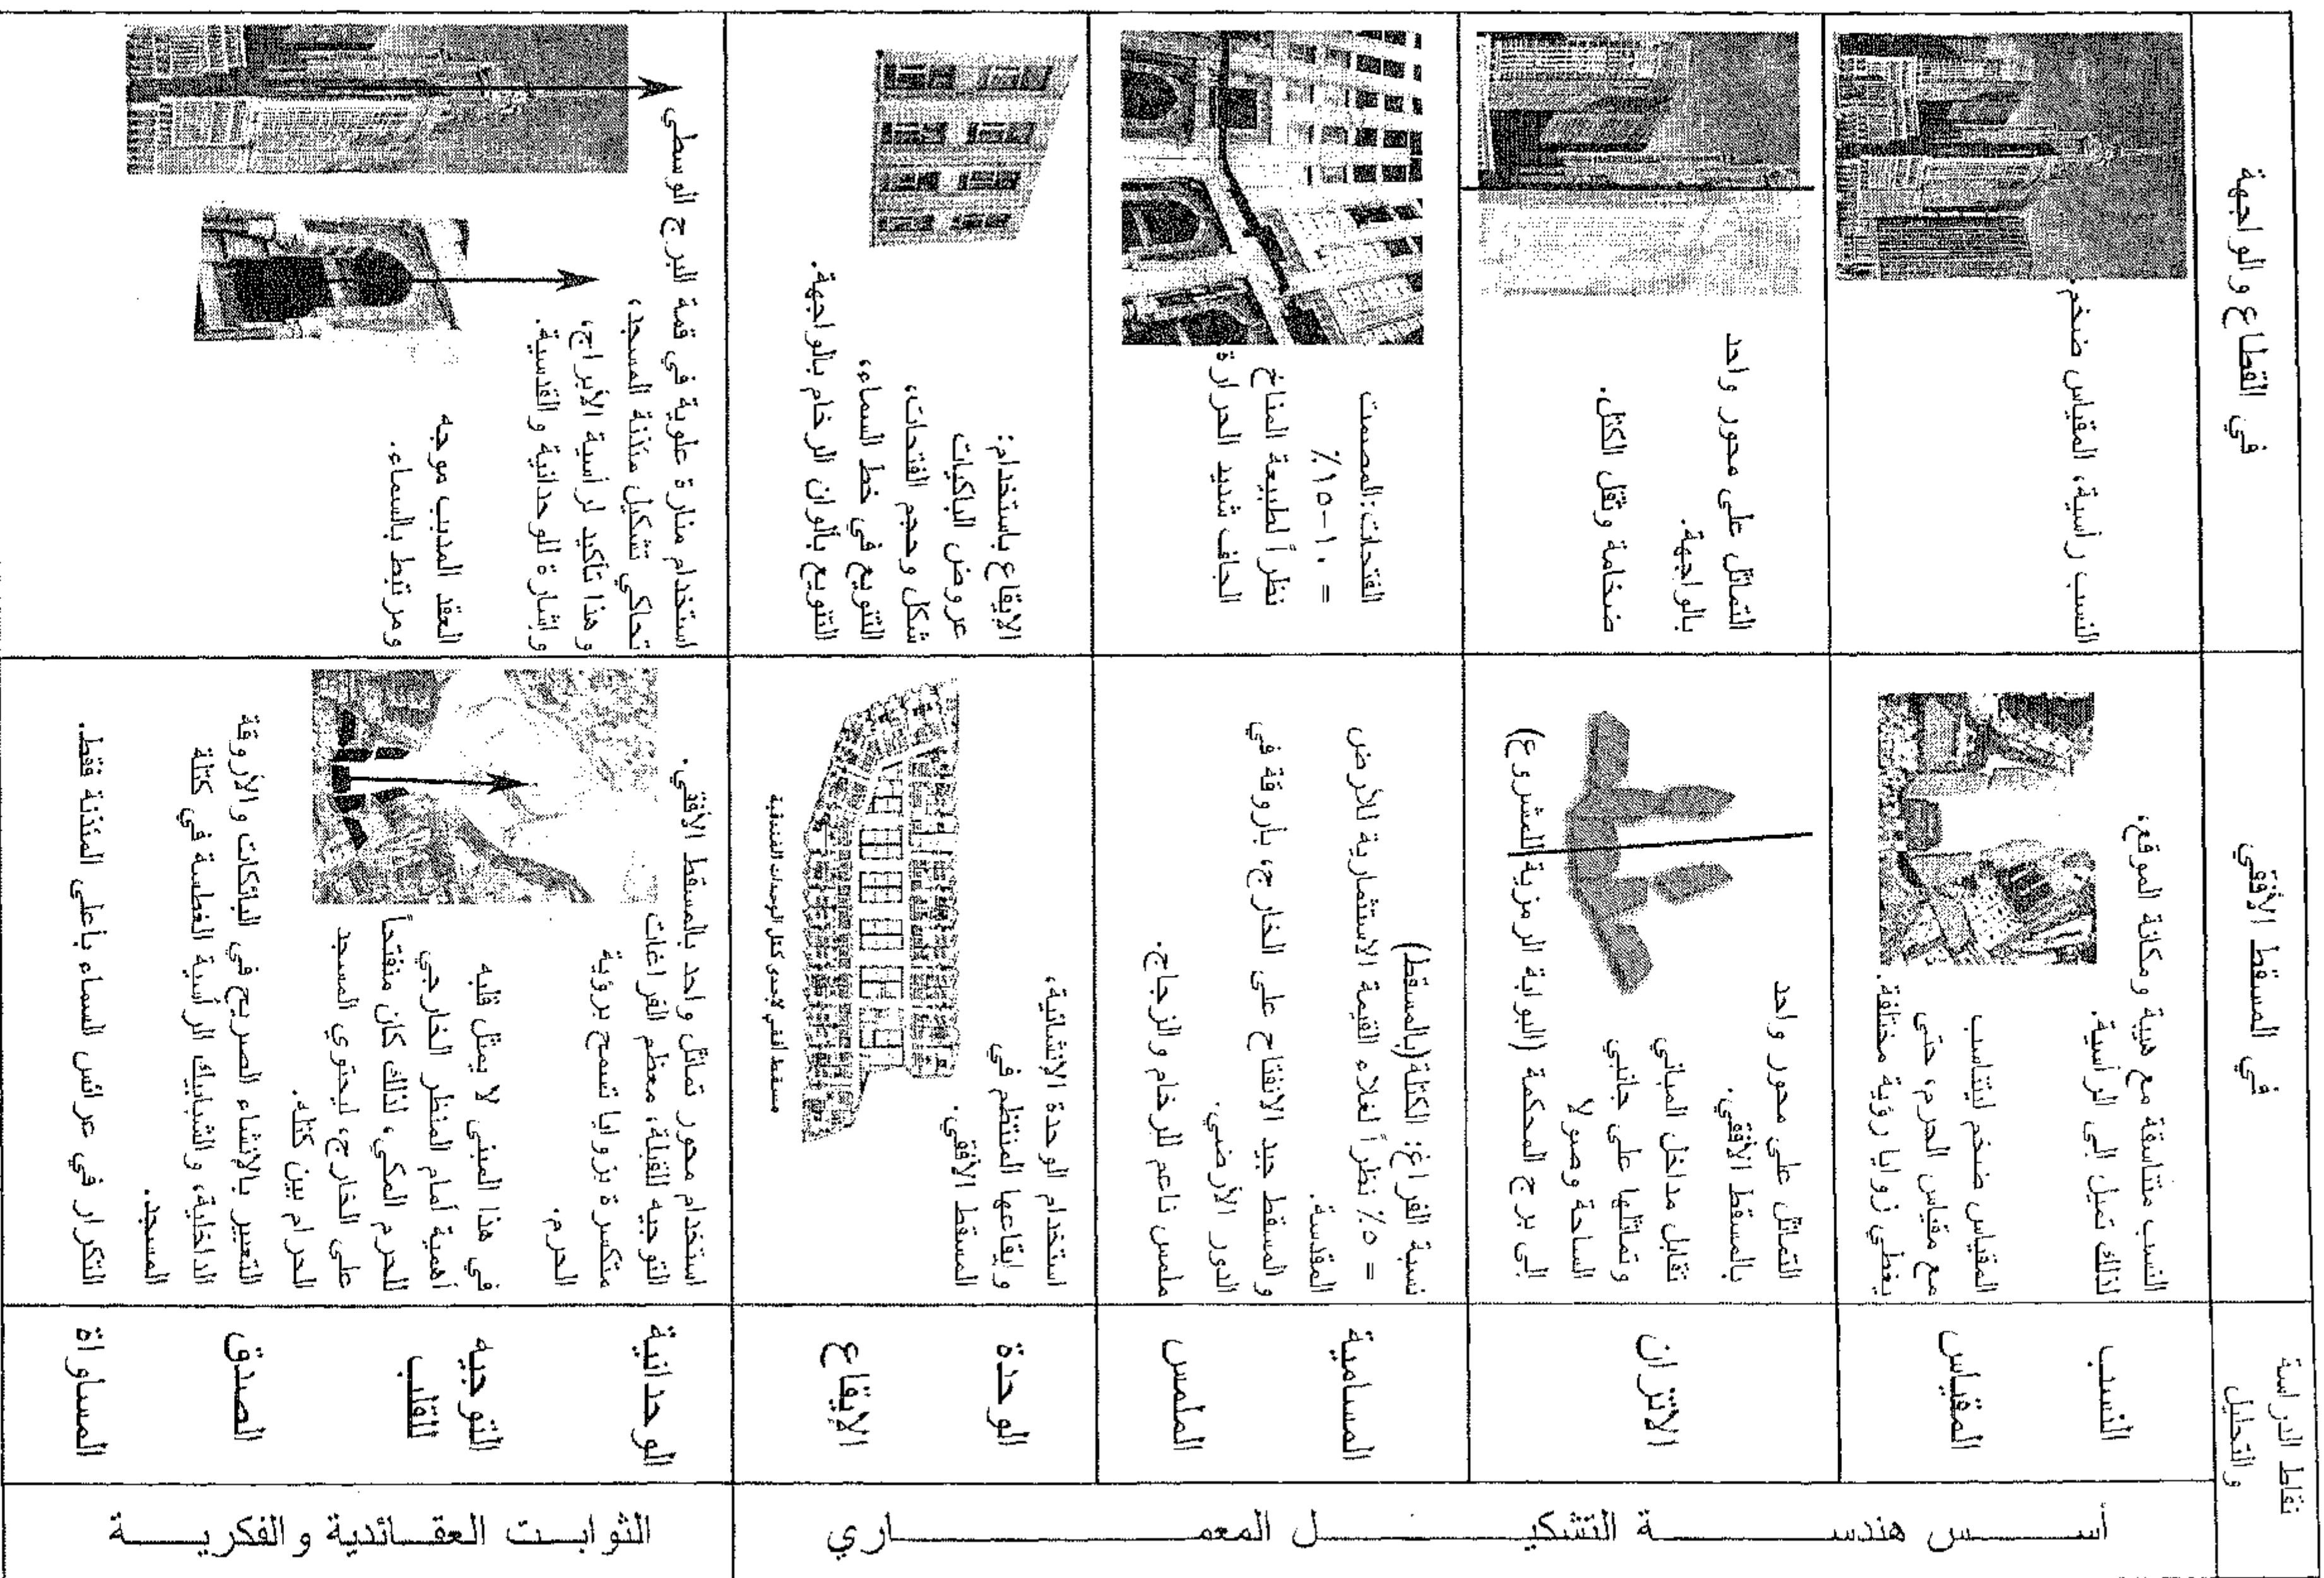 نقاط الدراسة
والتحليل
في المسقط الأفقي
في القطاع والواجهة
أسس هندسة التشكيل المعماري
النسب
المقياس
النسب متناسقة مع هيبة ومكانة الموقع،
لذلك تميل إلى الرأسية.
المقياس ضخم ليتناسب
مع مقياس الحرم، حتى
يغطي زوايا رؤية مختلفة.
النسب رأسية، المقياس ضخم.
الاتزان
التماثل على محور واحد
بالمسقط الأفقي.
تقابل مداخل المباني
وتماثلها على جانبي
الساحة وصولا
إلى برج المحكمة (البوابة الرمزية للمشروع)
التماثل على محور واحد
بالواجهة.
ضخامة وثقل الكتل.
المسامية
الملمس
نسبة الفراغ: الكتلة(بالمسقط)
= ٥٪ نظراً لغلاء القيمة الاستثمارية للأرض
المقدسة.
والمسقط جيد الانفتاح على الخارج، بأروقة في
الدور الأرضي.
ملمس ناعم للرخام والزجاج.
الفتحات:المصمت
= ١٠-١٥٪
نظراً لطبيعة المناخ
الجاف شديد الحرارة
الوحدة
الإيقاع
استخدام الوحدة الإنشائية،
وإيقاعها المنتظم في
المسقط الأفقي.
مسقط أفقي لإحدى كتل الوحدات الفندقية
الإيقاع باستخدام:
عروض الباكيات
شكل وحجم الفتحات،
التنويع في خط السماء،
التنويع بألوان الرخام بالواجهة.
الثوابت العقائدية والفكرية
الوحدانية
التوجيه
للقلب
الصدق
المساواة
استخدام محور تماثل واحد بالمسقط الأفقي.
التوجيه للقبلة، معظم الفراغات
متكسرة بزوايا تسمح برؤية
الحرم.
في هذا المبنى لا يمثل قلبه
أهمية أمام المنظر الخارجي
للحرم المكي، لذلك كان منفتحاً
على الخارج، ليحتوي المسجد
الحرام بين كتله.
التعبير بالإنشاء الصريح في البائكات والأروقة
الداخلية، والشبابيك الرأسية الغطسة في كتلة
المسجد.
التكرار في عرائس السماء بأعلى المئذنة فقط.
استخدام منارة علوية في قمة البرج الوسطى
تحاكي تشكيل مئذنة المسجد،
وهذا تأكيد لرأسية الأبراج،
وإشارة للوحدانية والقدسية.
العقد المدبب موجه
ومرتبط بالسماء.